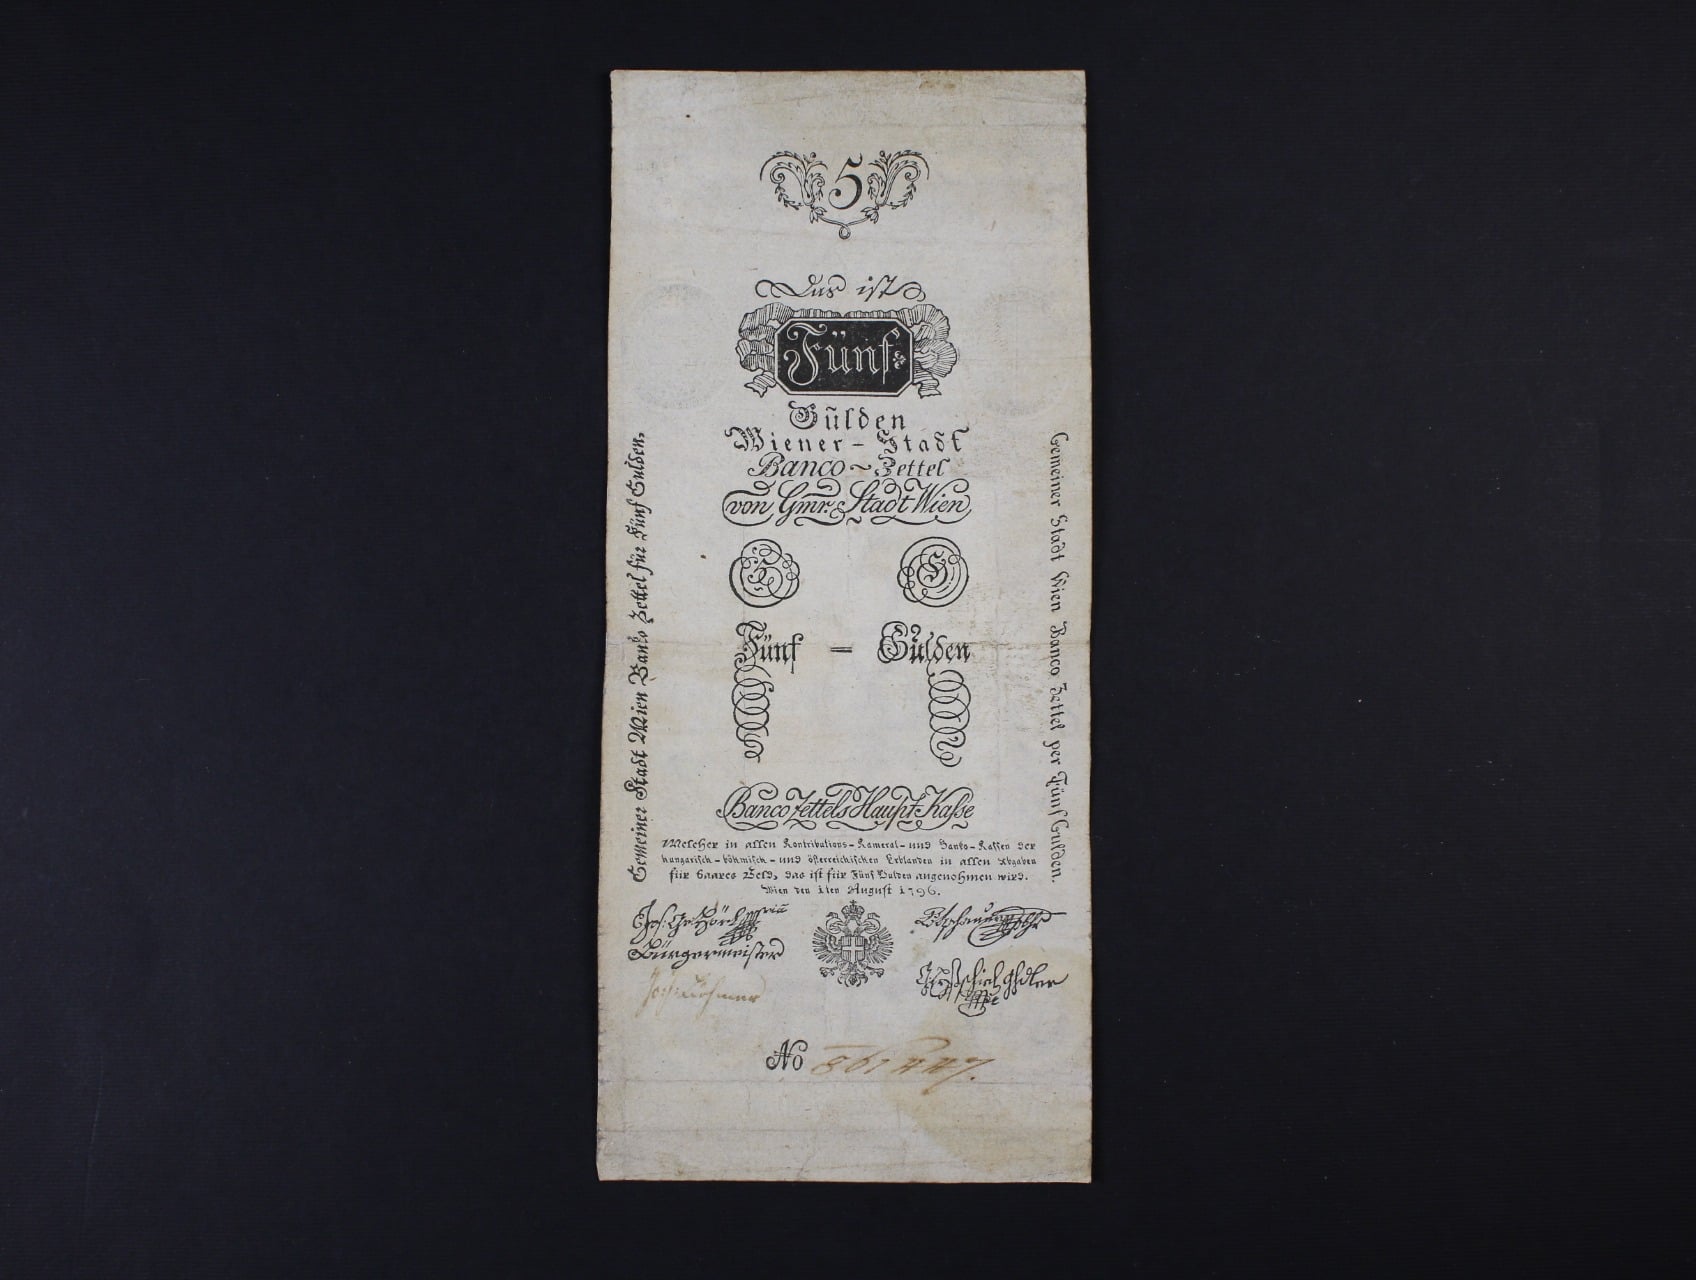 5
Das ist
Fünf
Gülden
Wiener-Stadt
Banco-Zettel
von Gmr. Stadt Wien
Fünf = Gülden
Gemeiner Stadt Wien Banko Zettel für Fünf Gulden.
Gemeiner Stadt Wien Banco Zettel per Fünf Gulden.
Banco Zettels Haupt-Kasse
Welcher in allen Kontributions-Kameral-und Banko-Kassen der
hungarisch-böhmisch-und österreichischen Erblanden in allen Abgaben
für baares Geld, das ist für Fünf Gulden angenohmen wird.
Wien den 1ten August 1796.
Bürgermeister
No